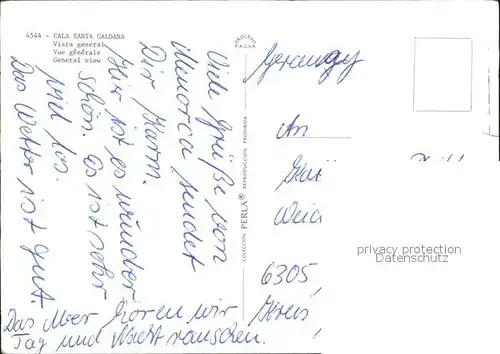 4544 - CALA SANTA GALDANA
Vista general
Vue générale
General view
PROCESO
FAGSA
COLECCION PERLA® REPRODUCCION PROHIBIDA
Viele Grüße von
Menorca sendet
Dir Karin.
Hier ist es wunder
schön. Es ist sehr
viel los.
Das Wetter ist gut.
Das Meer hören wir
Tag und Nacht rauschen.
Germany
An
6305,
Kreis
privacy protection
Datenschutz